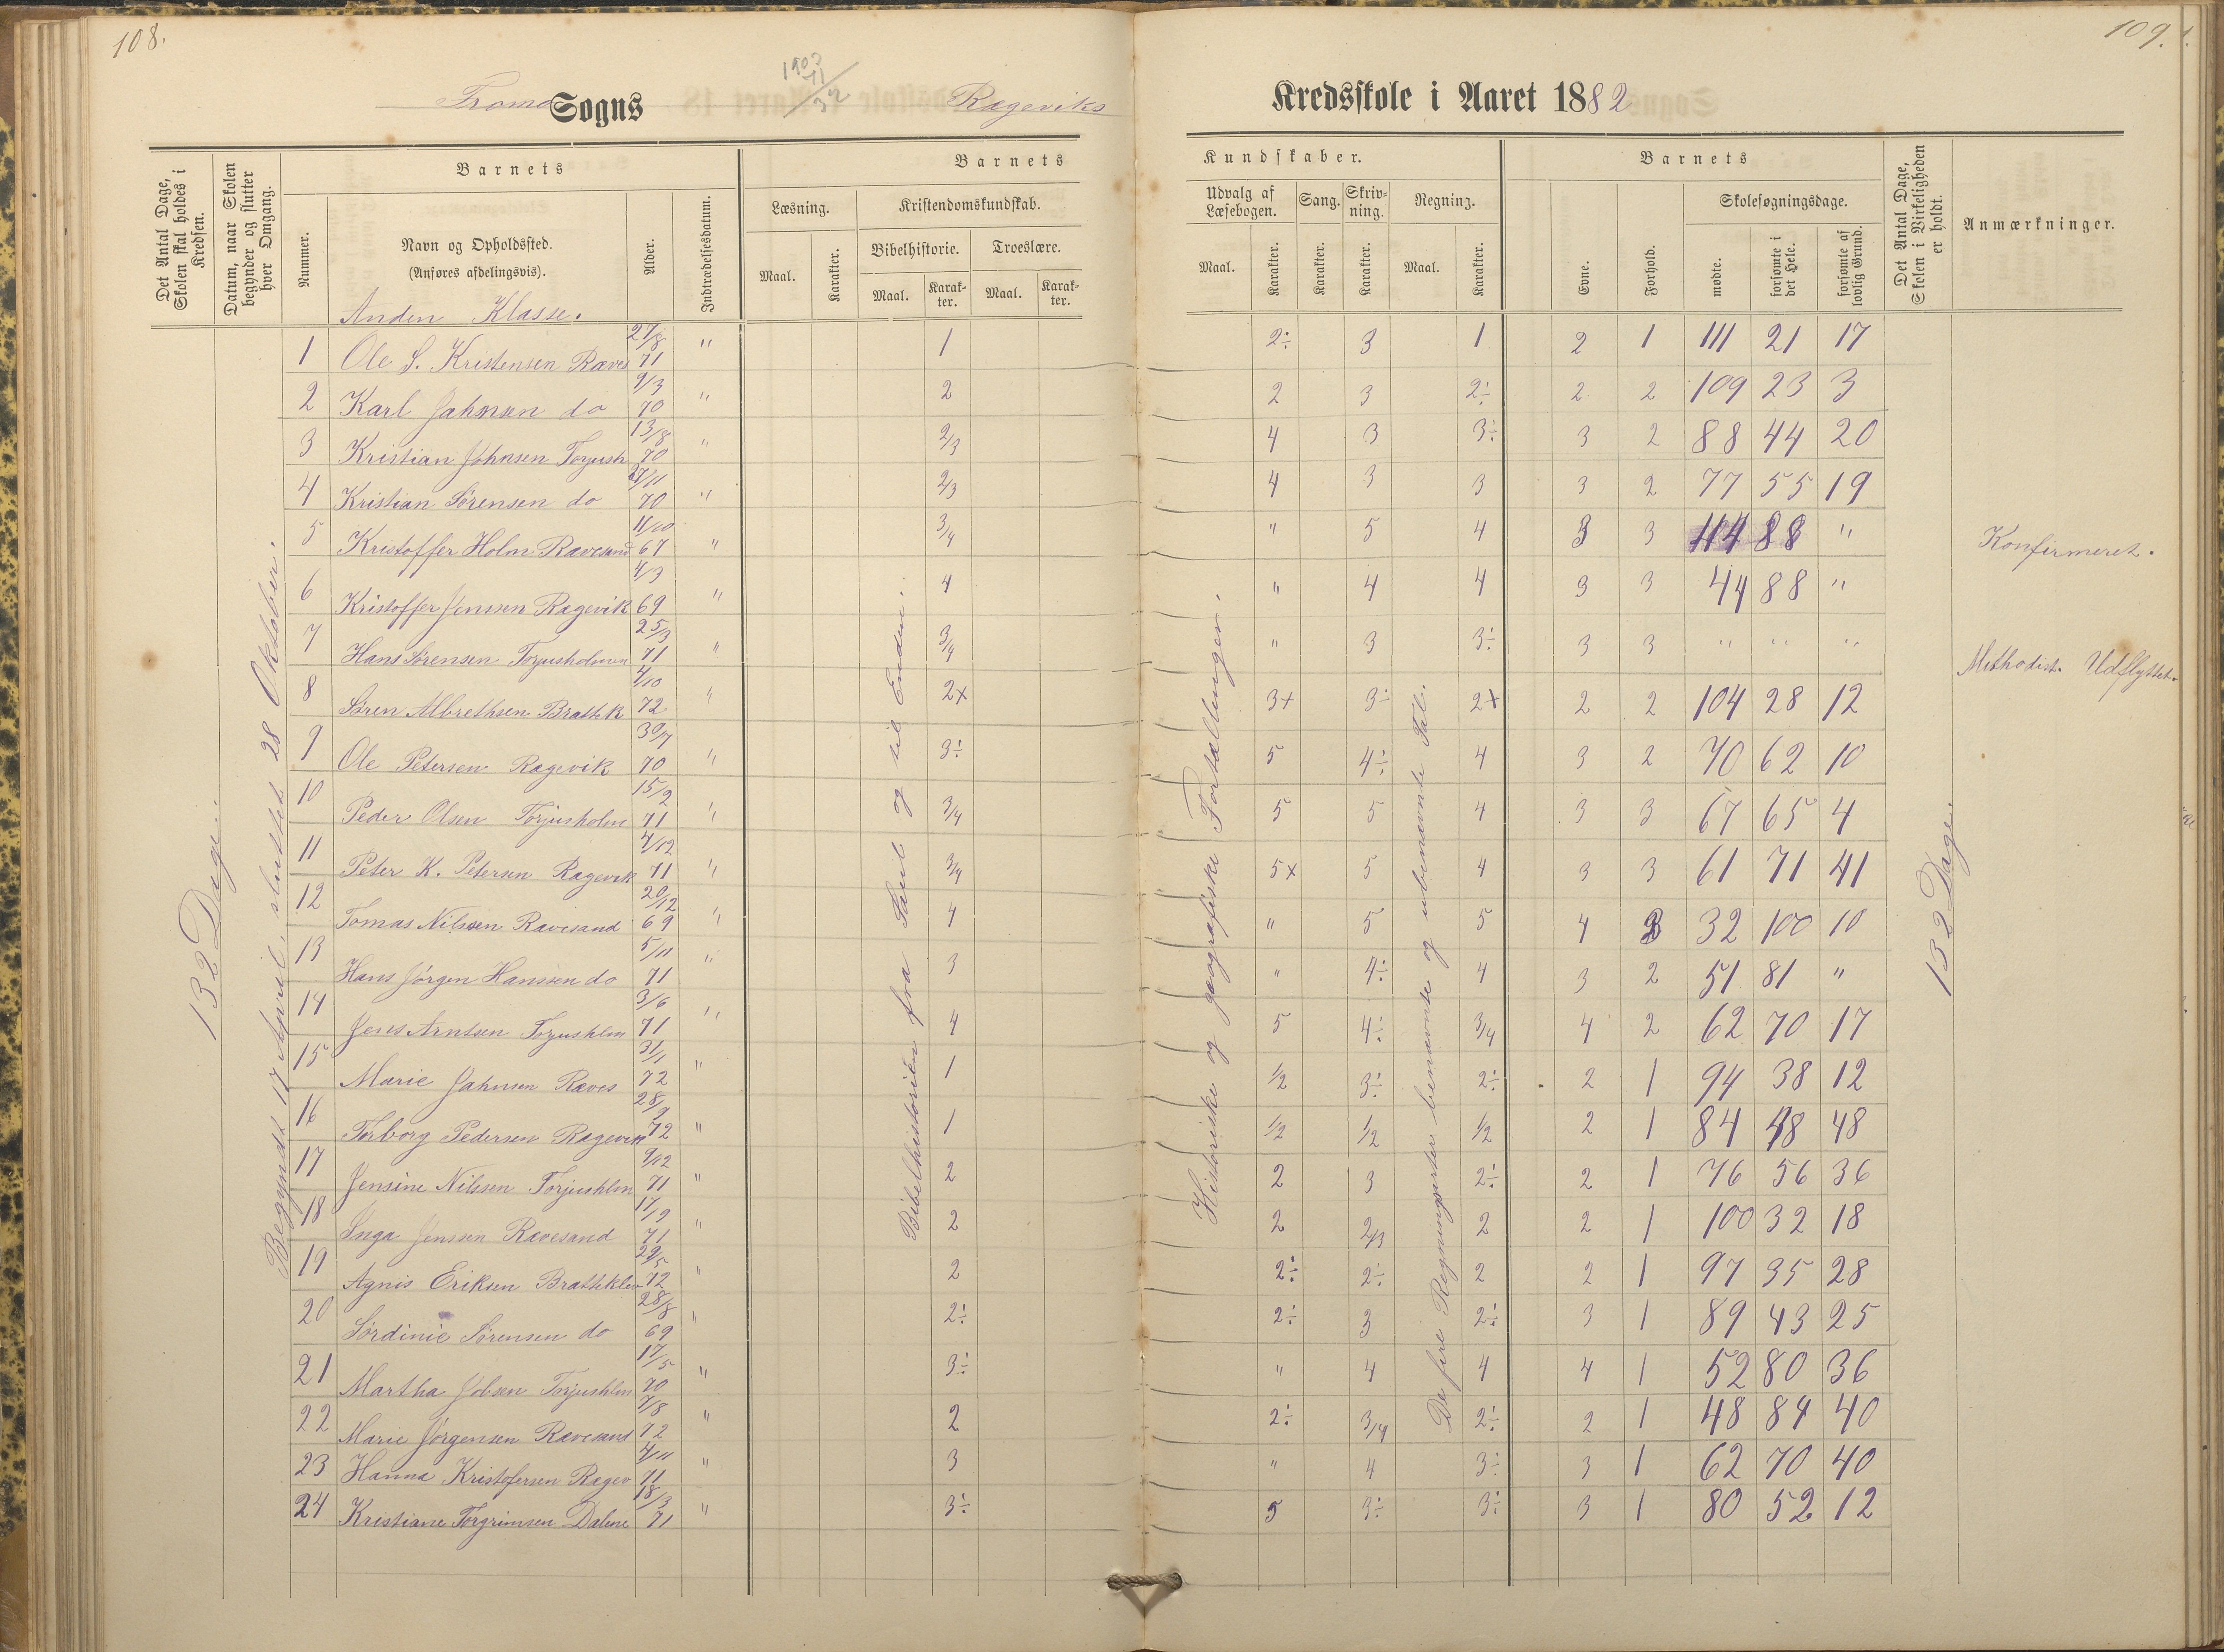 108.
109.
Tromø Sogns
1903
11
32
Rægeviks
Kredsskole i Aaret 1882
Det Antal Dage, Skolen skal holdes i Kredsen.
Datum, naar Skolen begynder og slutter hver Omgang.
Barnets
Nummer.
Navn og Opholdssted.
(Anføres afdelingsvis).
Alder.
Indtrædelsesdatum.
Barnets Kundskaber.
Læsning.
Kristendomskundskab.
Maal.
Karakter.
Bibelhistorie.
Troeslære.
Maal.
Karakter.
Maal.
Karakter.
Udvalg af Læsebogen.
Sang.
Skrivning.
Regning.
Maal.
Karakter.
Karakter.
Karakter.
Maal.
Karakter.
Barnets
Evne.
Forhold.
Skolesøgningsdage.
mødte.
forsømte i det Hele.
forsømte af lovlig Grund.
Det Antal Dage, Skolen i Virkeligheden er holdt.
Anmærkninger.
Anden Klasse.
132 Dage.
Begyndt 17 April, sluttet 28 Oktober.
Bibelhistorien fra Saul og til Enden.
Historiske og geografiske Fortællinger.
De fire Regningsarter benævnte og ubenævnte Tal.
132 Dage.
1 Ole S. Kristensen Raves 27/8 71 " 1 2÷ 3 1 2 1 111 21 17
2 Karl Jahnsen do 9/3 70 " 2 2 3 2÷ 2 2 109 23 3
3 Kristian Johnsen Torjush 13/8 70 " 2/3 4 3 3÷ 3 2 88 44 20
4 Kristian Sørensen do 27/11 70 " 2/3 4 3 3 3 2 77 55 19
5 Kristoffer Holm Ravesand 11/10 67 " 3/4 " 5 4 3 3 44 88 " Konfirmeret.
6 Kristoffer Jensen Rægevik 4/3 69 " 4 " 4 4 3 3 44 88 "
7 Hans Sørensen Torjusholmen 25/3 71 " 3/4 " 3 3÷ 3 3 " " " Methodist. Udflyttet.
8 Søren Albrethsen Brattek 4/10 72 " 2+ 3+ 3÷ 2+ 2 2 104 28 12
9 Ole Petersen Rægevik 30/7 70 " 3÷ 5 4÷ 4 3 2 70 62 10
10 Peder Olsen Torjusholm 15/2 71 " 3/4 5 5 4 3 3 67 65 4
11 Peter K. Petersen Rægevik 4/12 71 " 3/4 5+ 5 4 3 3 61 71 41
12 Tomas Nilssen Ravesand 20/12 69 " 4 " 5 5 4 3 32 100 10
13 Hans Jørgen Hanssen do 5/11 71 " 3 " 4÷ 4 3 2 51 81 "
14 Jens Arntsen Torjushlm 3/6 71 " 4 5 4÷ 3/4 4 2 62 70 17
15 Marie Jahnsen Raves 31/1 72 " 1 1/2 3÷ 2÷ 2 1 94 38 12
16 Torborg Pedersen Rægevik 28/9 72 " 1 1/2 1/2 1/2 2 1 84 48 48
17 Jensine Nilssen Torjushlm 9/12 71 " 2 2 3 2÷ 2 1 76 56 36
18 Inga Jenssen Ravesand 17/9 71 " 2 2 2/3 2 2 1 100 32 18
19 Agnis Eriksen Bratteklev 29/5 72 " 2 2÷ 2÷ 2 2 1 97 35 28
20 Sørdinie Sørensen do 28/8 69 " 2÷ 2÷ 3 2÷ 3 1 89 43 25
21 Martha Jobsen Torjushlm 17/5 70 " 3÷ " 4 4 4 1 52 80 36
22 Marie Jørgensen Ravesand 7/8 72 " 2 2÷ 3/4 2÷ 2 1 48 84 40
23 Hanna Kristofersen Rægev 4/11 71 " 3 " 4 3÷ 3 1 62 70 40
24 Kristiane Torgrimsen Dalene 18/3 71 " 3÷ 5 3÷ 3÷ 3 1 80 52 12